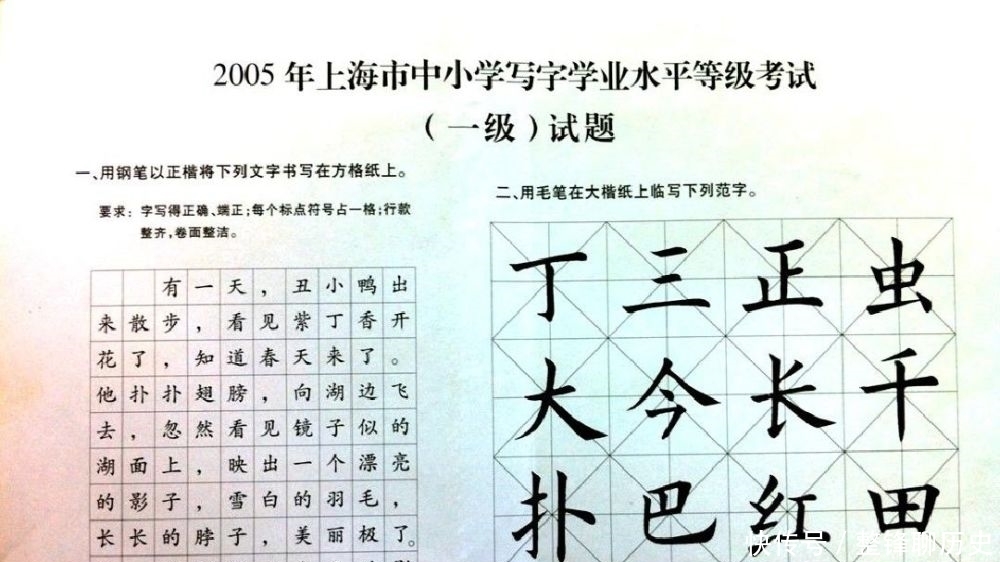 2005年上海市中小学写字学业水平等级考试
（一级）试题
一、用钢笔以正楷将下列文字书写在方格纸上。
要求：字写得正确、端正；每个标点符号占一格；行款
整齐，卷面整洁。
有一天，丑小鸭出
来散步，看见紫丁香开
花了，知道春天来了。
他扑扑翅膀，向湖边飞
去，忽然看见镜子似的
湖面上，映出一个漂亮
的影子，雪白的羽毛，
长长的脖子，美丽极了。
二、用毛笔在大楷纸上临写下列范字。
丁三正虫
大今长千
扑巴红田
快传号/整锋聊历史